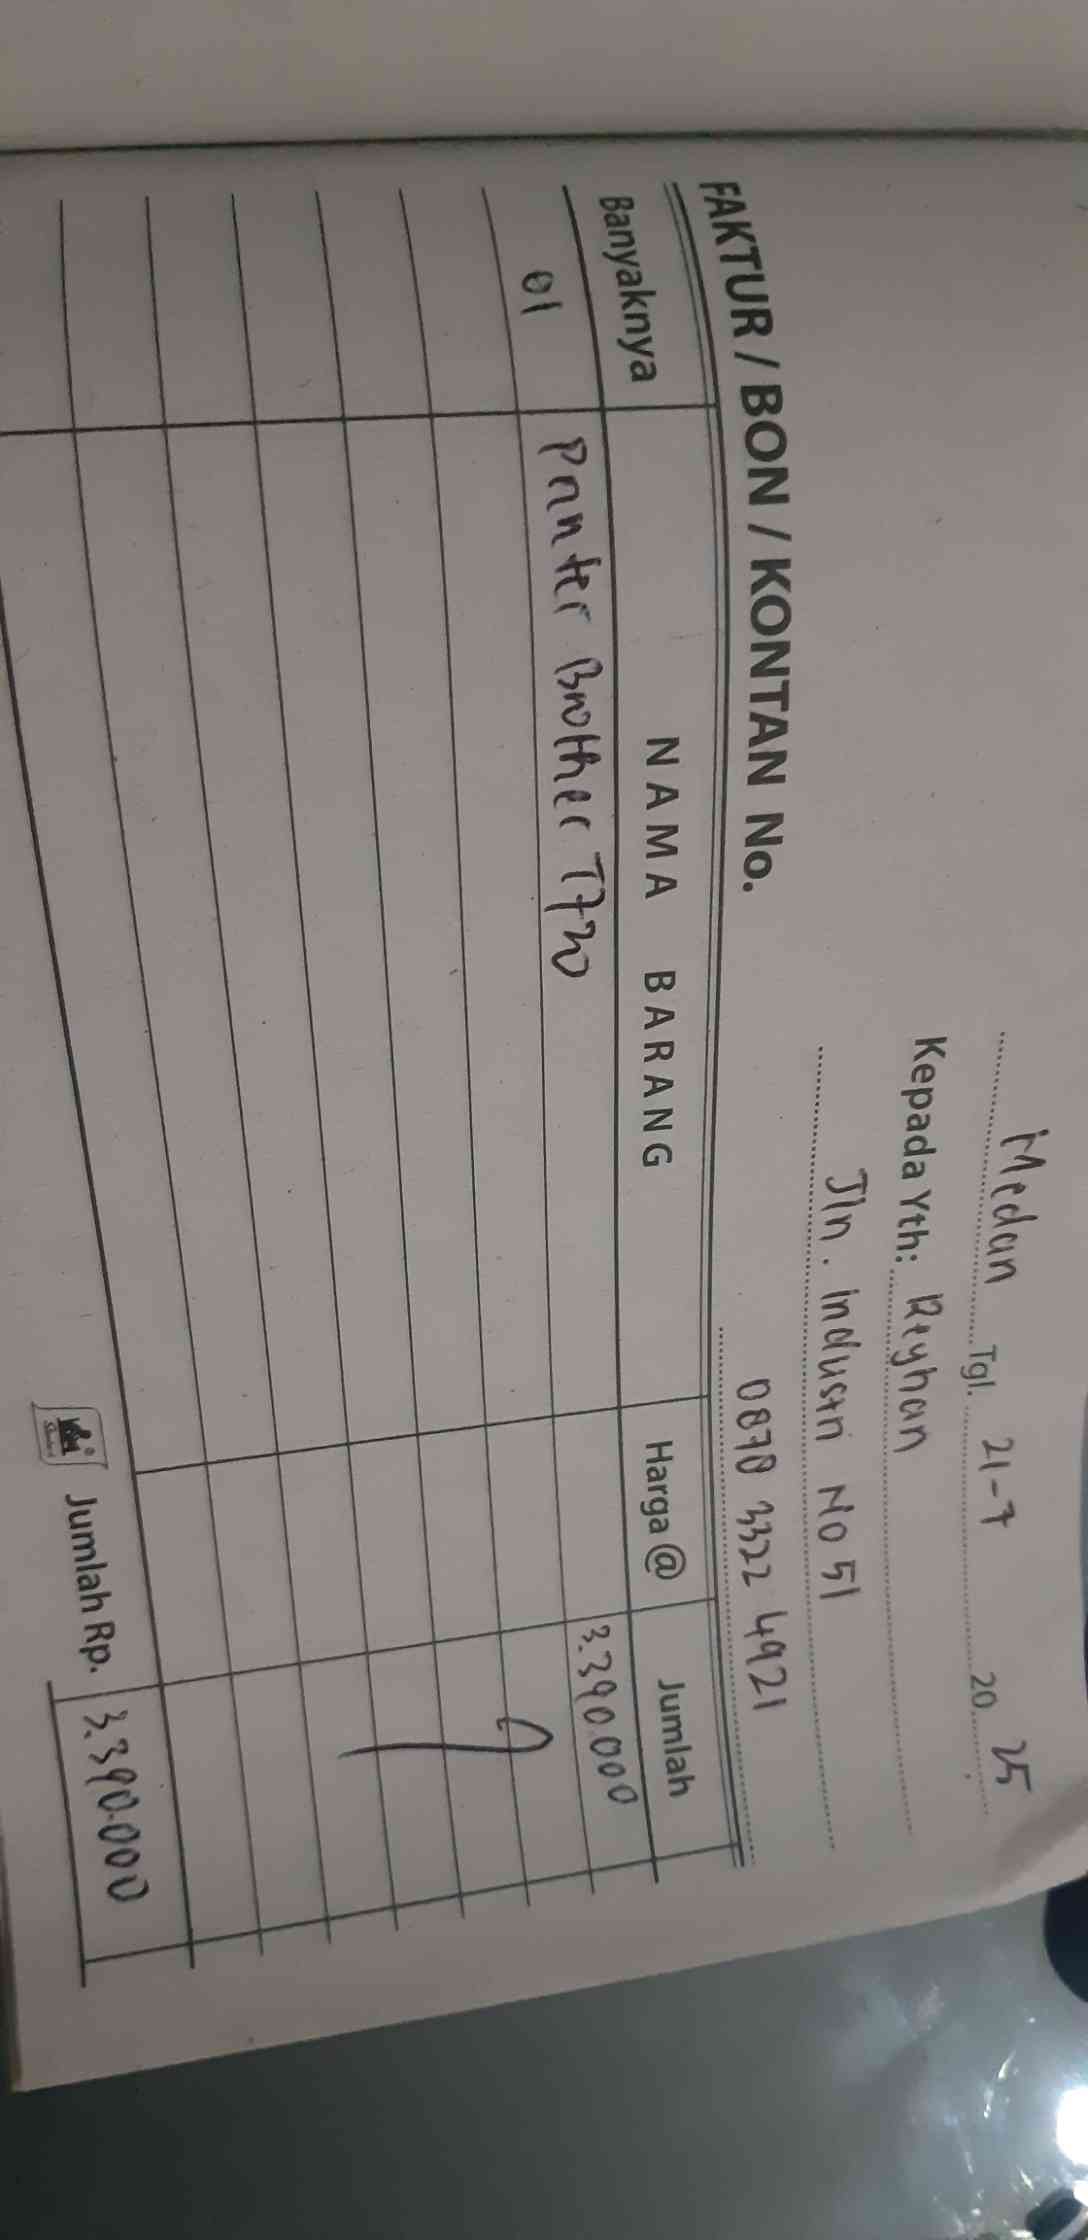 Medan Tgl. 21-7 20 25
Kepada Yth: Reyhan
Jln. industri No 51
0878 3322 4921
FAKTUR / BON / KONTAN No.
Banyaknya NAMA BARANG Harga @ Jumlah
01 Printer Brother T720 3.390.000
Jumlah Rp. 3.390.000